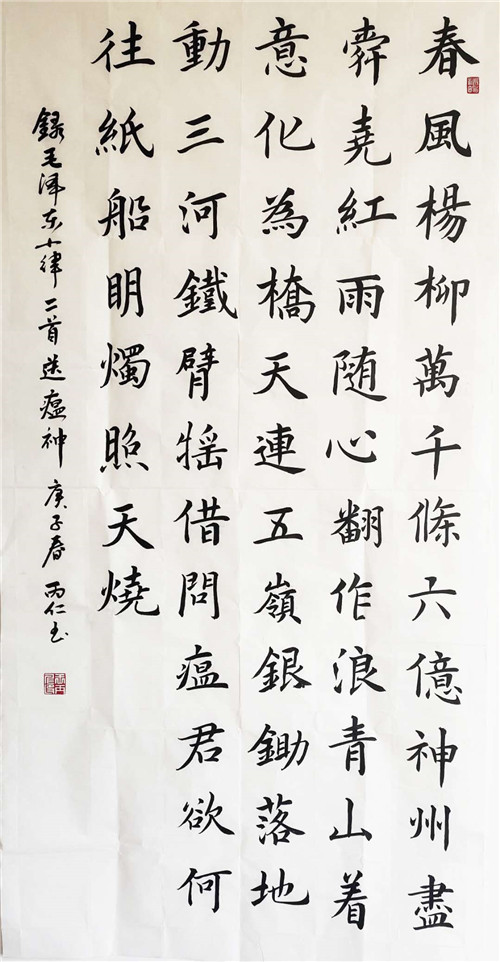 春風楊柳萬千條六億神州盡
舜堯紅雨随心翻作浪青山着
意化為橋天連五嶺銀鋤落地
動三河鐵臂摇借問瘟君欲何
往紙船明燭照天燒
録毛泽东七律二首送瘟神 庚子春 丙仁书